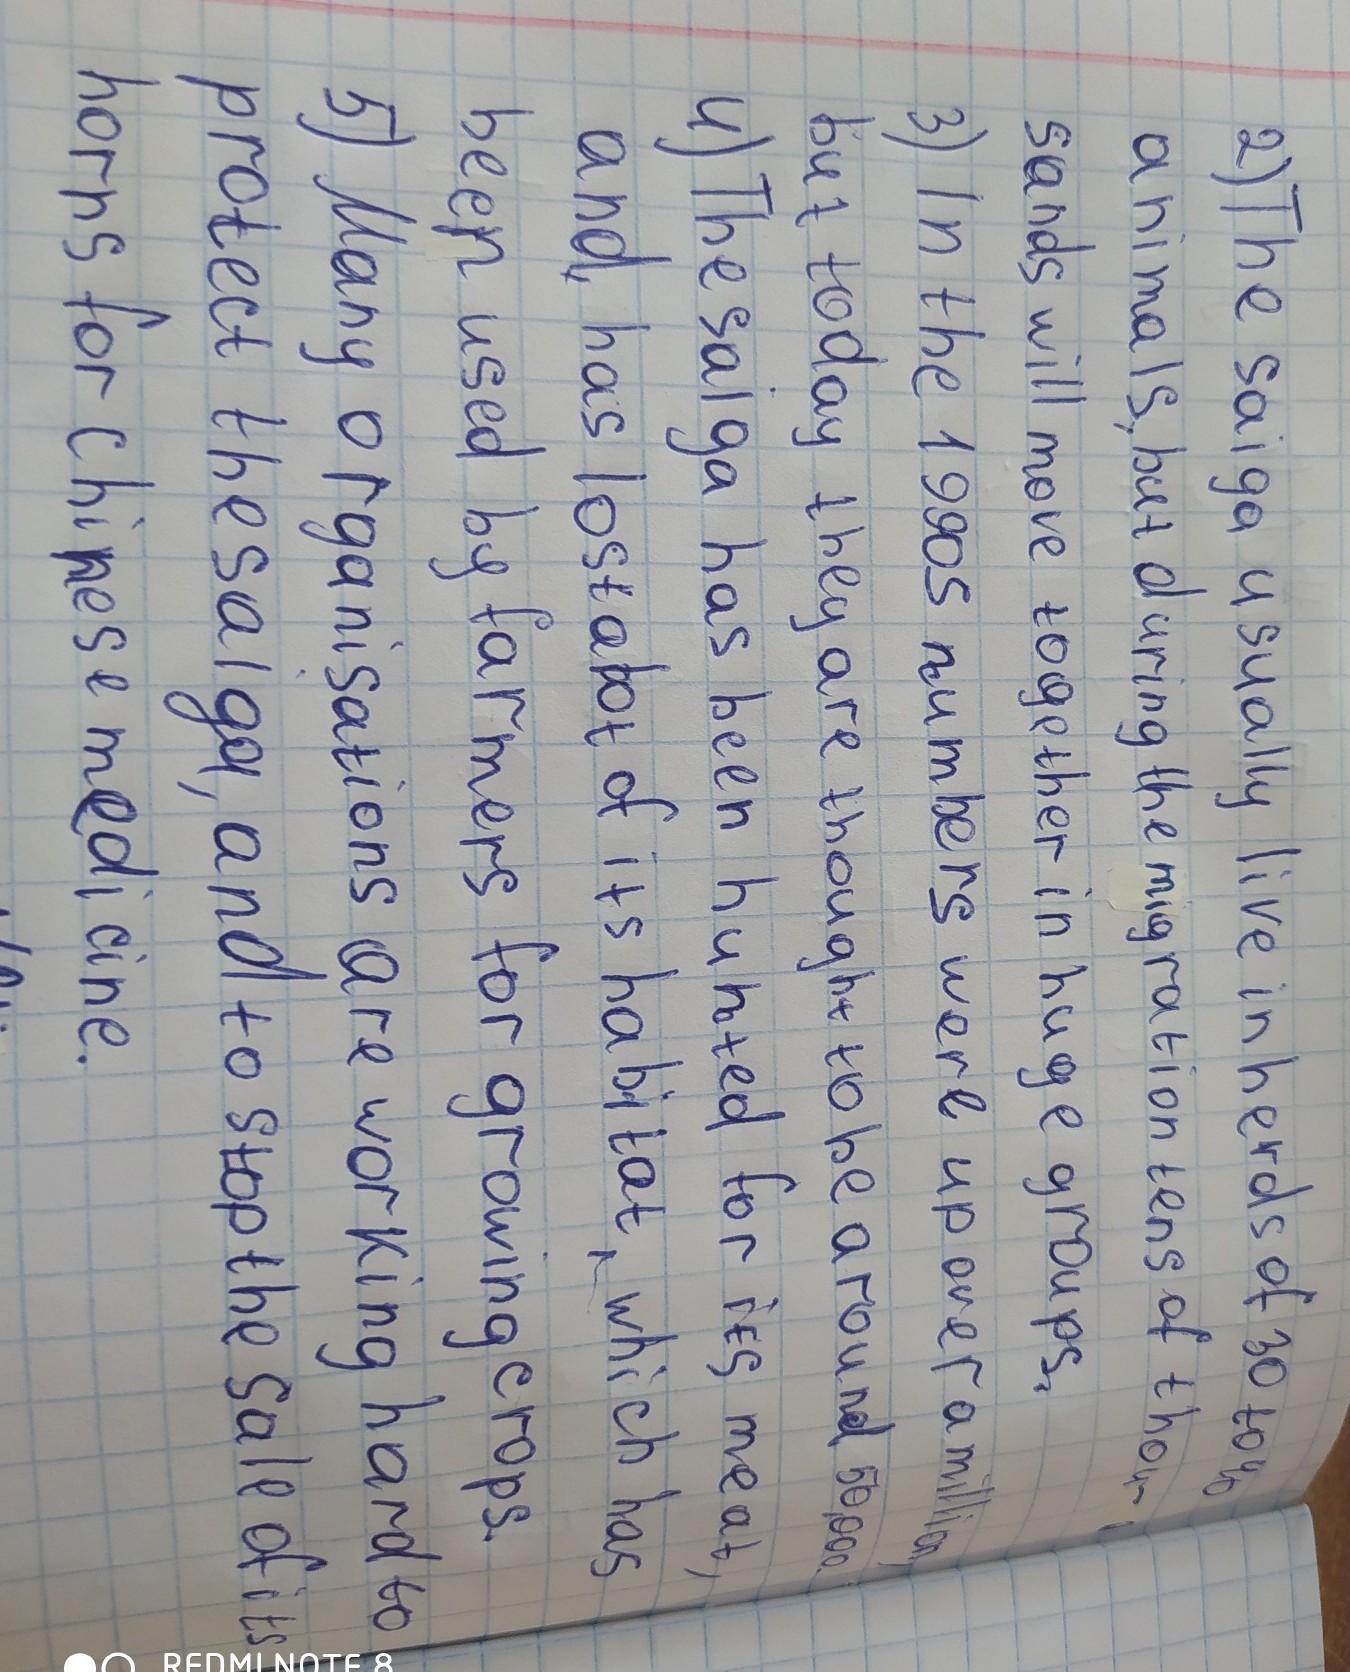 2) The saiga usually live in herds of 30 to 40
animals, but during the migration tens of thou-
sands will move together in huge groups.
3) In the 1990s numbers were up over a million,
but today they are thought to be around 50,000.
4) The saiga has been hunted for its meat,
and, has lost a lot of its habitat, which has
been used by farmers for growing crops.
5) Many organisations are working hard to
protect the saiga, and to stop the sale of its
horns for Chinese medicine.
REDMI NOTE 8